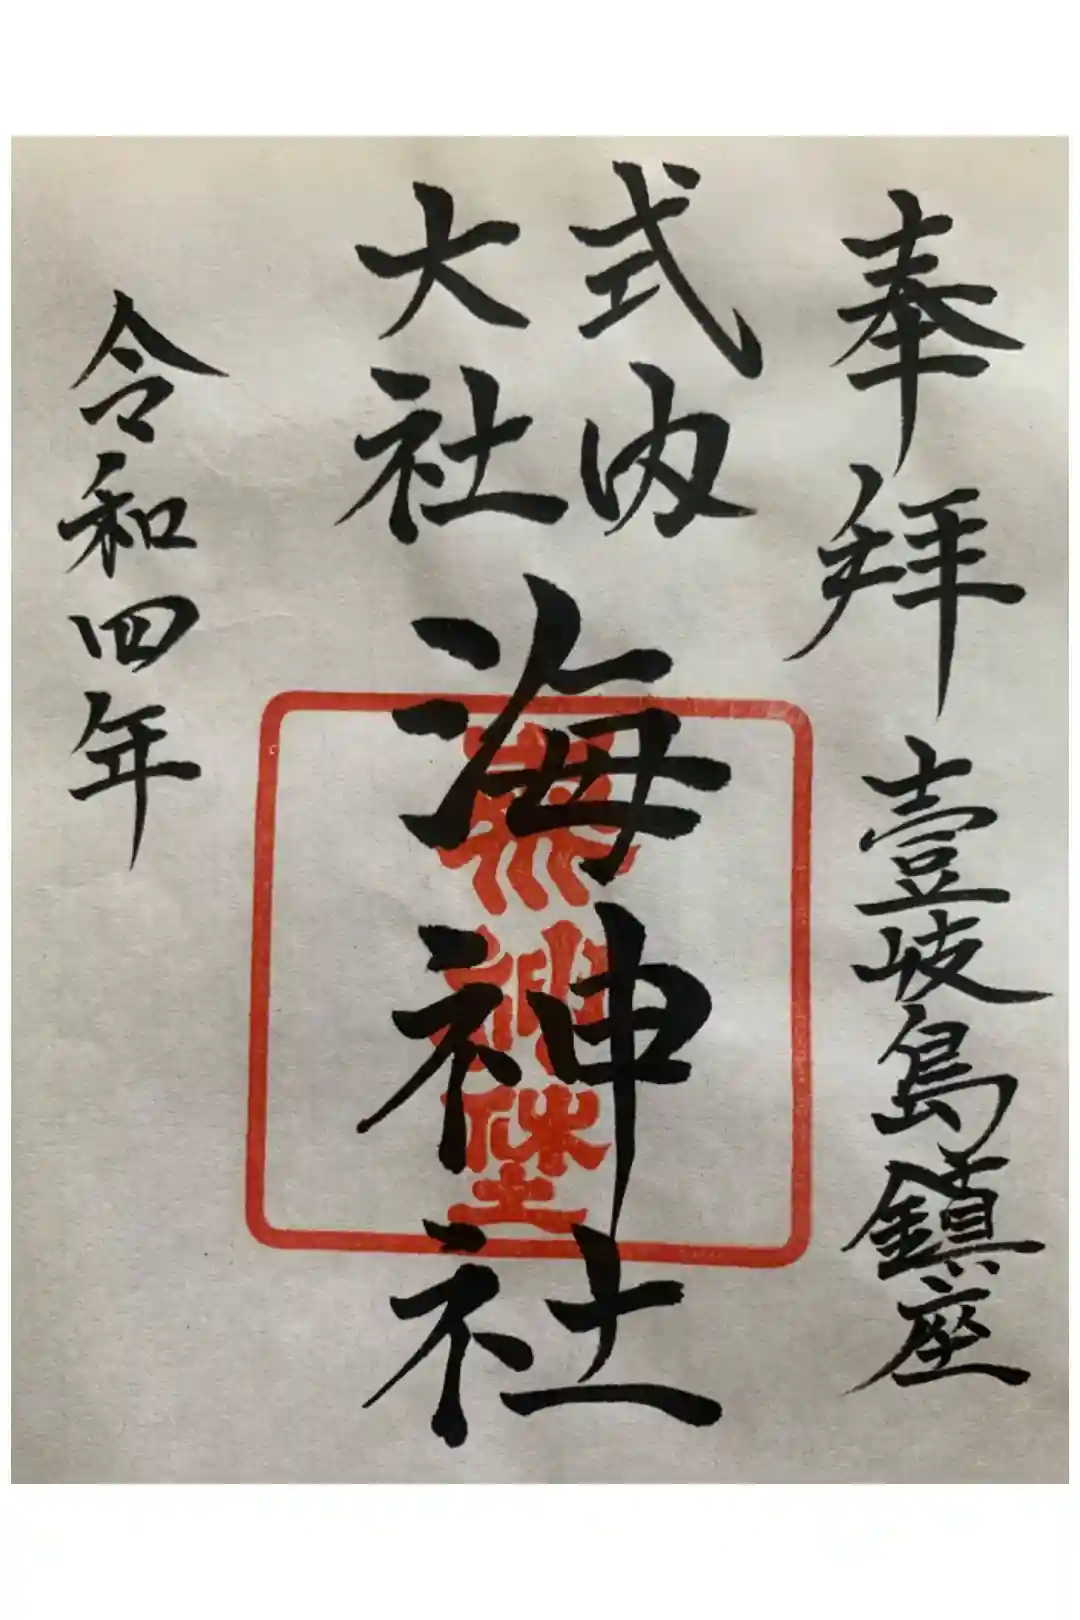 奉拜 壹岐島鎮座
式内
大社
海神社
令和四年